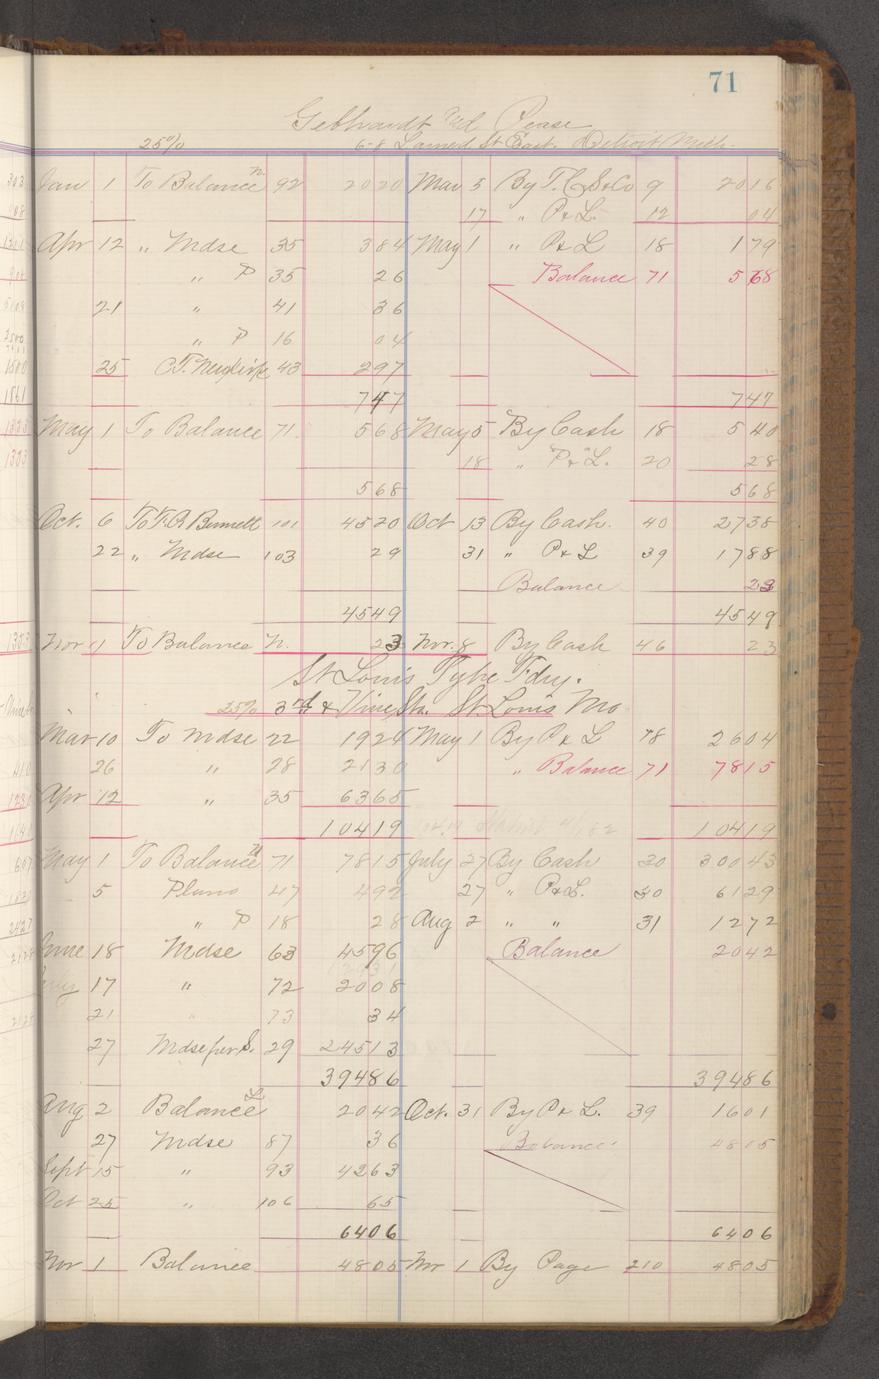 71
Gebhardt and Pease
25% 6-8 Larned St East. Detroit Mich.
Jan 1 To Balance 92 2020 Mar 5 By T.C.S&Co 9 2016
17 " P&L. 12 04
Apr 12 " Mdse 35 384 May 1 " P&L 18 179
" P 35 26 Balance 71 568
21 " 41 36
" P 16 04
25 43 297
747 747
May 1 To Balance 71 568 May 5 By Cash 18 540
18 " P&L. 20 28
568 568
Oct. 6 To F.R. Bennett 101 4520 Oct 13 By Cash. 40 2738
22 " Mdse 103 29 31 " P&L 39 1788
Balance 23
4549 4549
Nov 1 To Balance N. 23 Nov. 8 By Cash 46 23
St Louis Type Fdry.
25% 3rd & Vine Sts. St. Louis Mo
Mar 10 To Mdse 22 1924 May 1 By P&L 18 2604
26 " 28 2130 " Balance 71 7815
Apr 12 " 35 6365
10419 10419
May 1 To Balance 71 7815 July 27 By Cash 30 30043
5 Plano 47 492 27 " P&L. 30 6129
" P 18 28 Aug 2 " " 31 1272
June 18 Mdse 63 4596 Balance 2042
July 17 " 72 2008
21 " 73 34
27 Mdse per S. 29 24513
39486 39486
Aug 2 Balance 2042 Oct. 31 By P&L. 39 1601
27 Mdse 87 36 Balance 4805
Sept 15 " 93 4263
Oct 25 " 106 65
6406 6406
Nov 1 Balance 4805 Nov 1 By Page 210 4805